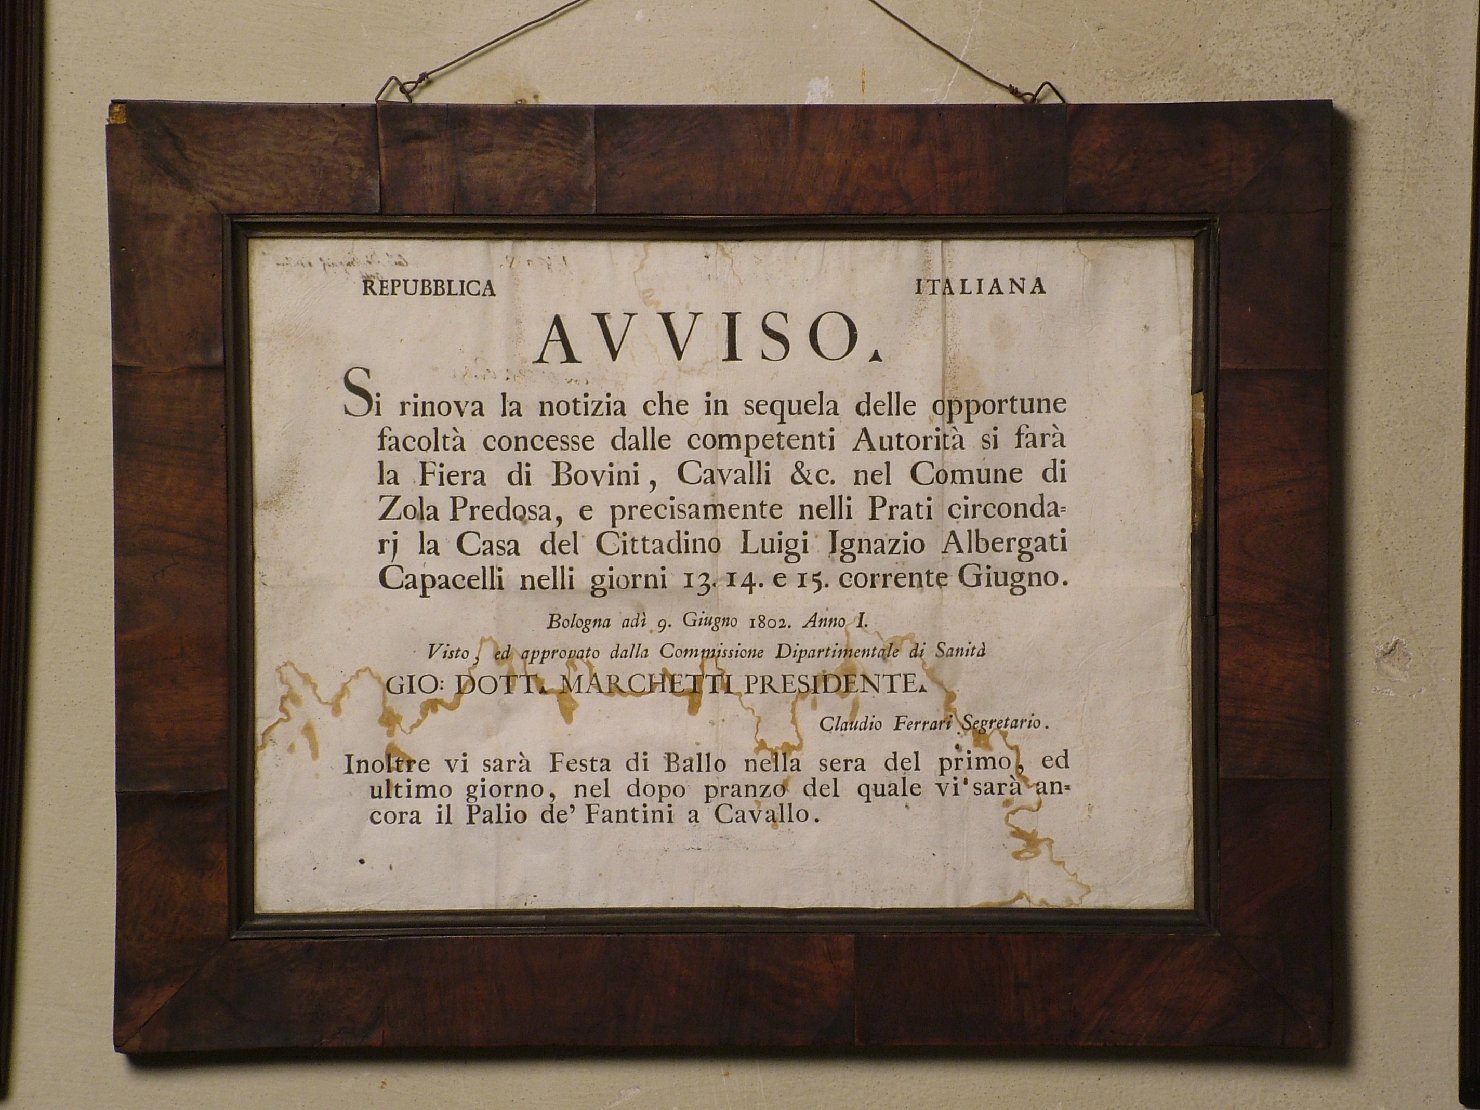 REPUBBLICA ITALIANA
AVVISO.
Si rinova la notizia che in sequela delle opportune
facoltà concesse dalle competenti Autorità si farà
la Fiera di Bovini, Cavalli &c. nel Comune di
Zola Predosa, e precisamente nelli Prati circonda=
rj la Casa del Cittadino Luigi Ignazio Albergati
Capacelli nelli giorni 13. 14. e 15. corrente Giugno.
Bologna adì 9. Giugno 1802. Anno I.
Visto, ed approvato dalla Commissione Dipartimentale di Sanità
GIO: DOTT. MARCHETTI PRESIDENTE.
Claudio Ferrari Segretario.
Inoltre vi sarà Festa di Ballo nella sera del primo, ed
ultimo giorno, nel dopo pranzo del quale vi sarà an=
cora il Palio de' Fantini a Cavallo.